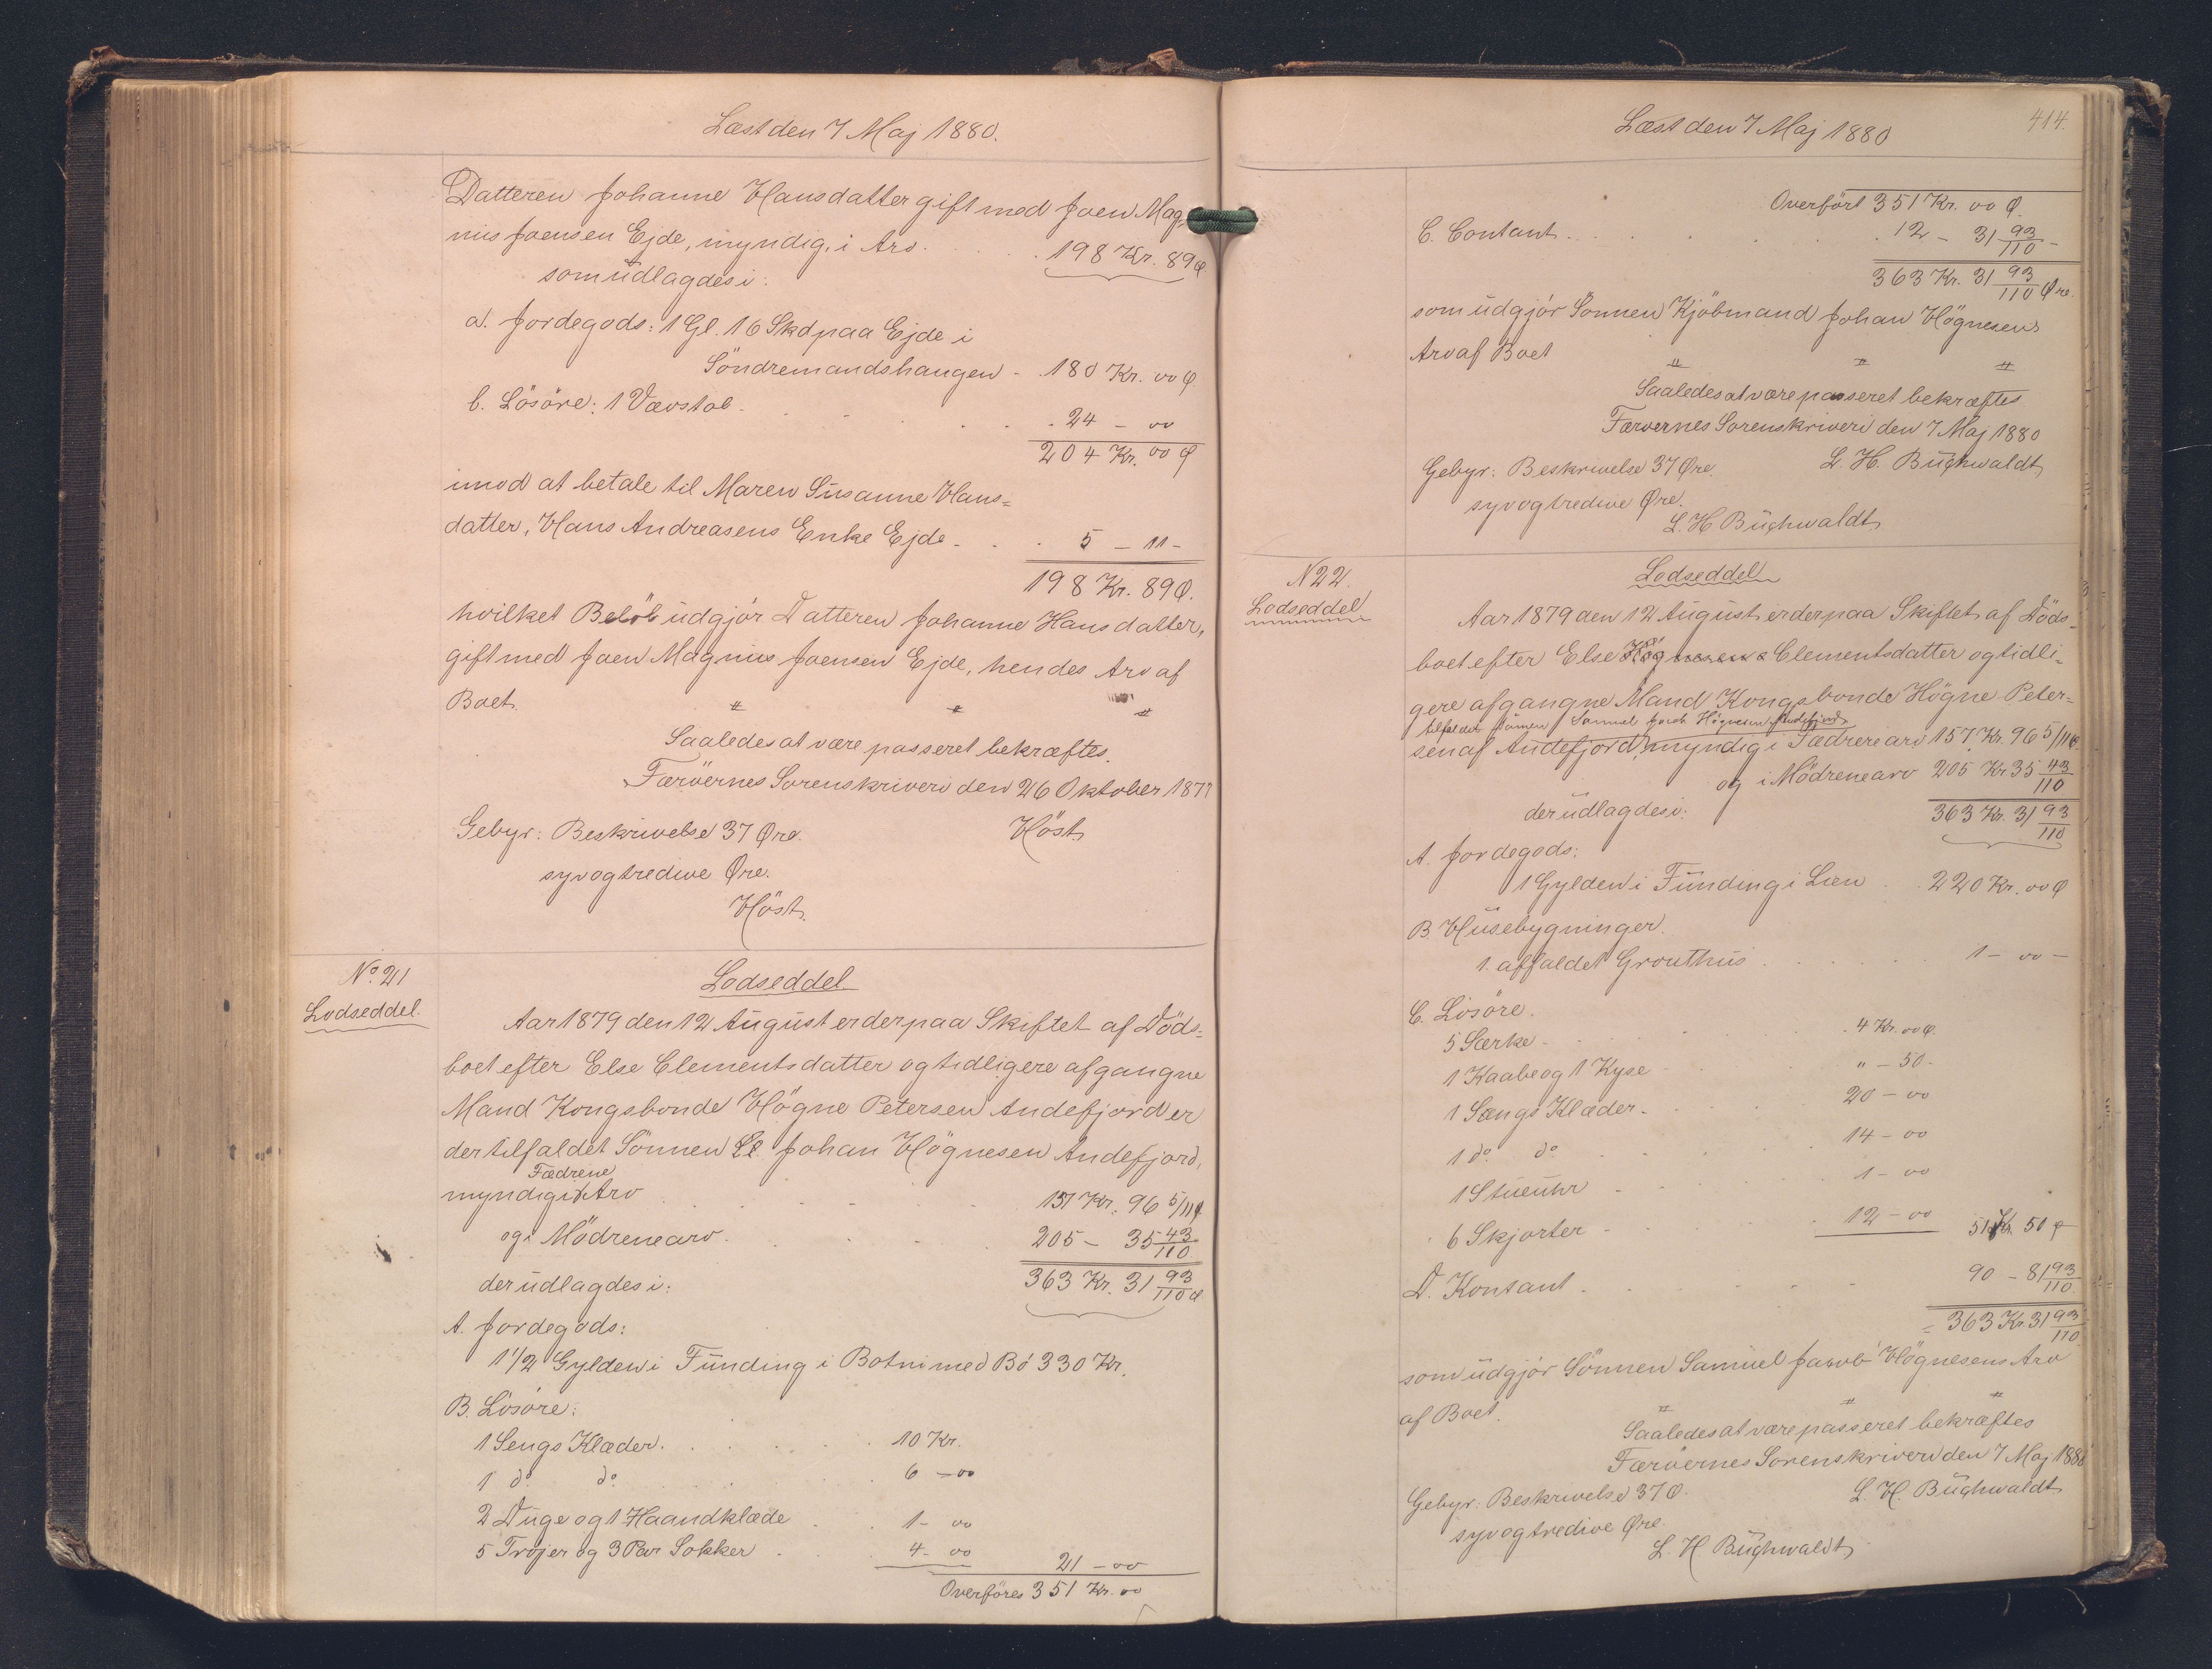 Læst den 7 Maj 1880.
Datteren Johanne Hansdatter gift med Joen Mag-
nus Joensen Ejde, myndig, i Arv . . . 198 Kr. 89 Ø
som udlagdes i:
a. Jordegods: 1 Gl. 16 Skd paa Ejde i
Söndremandshaugen - . 180 Kr. 00 Ø
b. Lösöre: 1 Vævstol . . . . . 24 - 00
204 Kr. 00 Ø
imod at betale til Maren Susanne Hans=
datter, Hans Andreasens Enke Ejde - . . 5 - 11 -
198 Kr. 89 Ø.
hvilket Belöb udgjör Datteren Johanne Hansdatter,
gift med Joen Magnus Joensen Ejde, hendes Arv af
Boet.
Saaledes at være passeret bekræftes.
Færöernes Sorenskriveri den 26 Oktober 1877
Gebyr: Beskrivelse 37 Øre. Höst
syvogtredive Øre.
Höst.
No. 21
Lodseddel.
Lodseddel
Aar 1879 den 12 August er der paa Skiftet af Döds=
boet efter Else Clementsdatter og tidligere afgangne
Mand Kongsbonde Högne Petersen Andefjord er
der tilfaldet Sönnen Johan Högnesen Andefjord,
Fædrene
myndig i Arv . . . . 157 Kr. 96 5/11 Ø
og i Mödrenearv . . . . 205 - 35 43/110
der udlagdes i: 363 Kr. 31 93/110 Ø
A. Jordegods:
1 1/2 Gylden i Funding i Botni med Bö 330 Kr.
B. Lösöre:
1 Sengs Klæder . . . . . 10 Kr.
1 do. do. . . . . 6 - 00
2 Duge og 1 Haandklæde . . 1 - 00
5 Tröjer og 3 Par Sokker . . 4 - 00 21 - 00
Overföres 351 Kr. 00
Læst den 7 Maj 1880
414.
Overfört 351 Kr. 00 Ø.
C. Contant . . . . 12 - 31 93/110 -
363 Kr. 31 93/110 Øre.
som udgjör Sönnen Kjöbmand Johan Högnesens
Arv af Boet
Saaledes at være passeret bekræftes
Færöernes Sorenskriveri den 7 Maj 1880
Gebyr: Beskrivelse 37 Øre. L. H. Buchwaldt
syvogtredive Øre.
L. H. Buchwaldt
N 22.
Lodseddel
Lodseddel
Aar 1879 den 12 August er der paa Skiftet af Döds-
boet efter Else Clementsdatter og tidli-
gere afgangne Mand Kongsbonde Högne Peter-
tilfaldet Sönnen Samuel Jacob Högnesen Andefjord
sen af Andefjord, myndig i Fædrene arv 157 Kr. 96 5/11 Ø
og i Mödrenearv 205 Kr 35 43/110
der udlagdes i: 363 Kr. 31 93/110
A. Jordegods:
1 Gylden i Funding i Læn . . 220 Kr. 00 Ø
B. Husebygninger.
1 affaldet Grouthus . . . . . 1 - 00 -
C. Lösöre.
5 Særke - . . . . 4 Kr. 00 Ø.
1 Kaabe og 1 Kyse . . " - 50 -
1 Sængs Klæder - . . . 20 - 00
1 do. do . . . . 14 - 00
1 Stueuhr . . . . 1 - 00
6 Skjorter . . . . 12 - 00 51 Kr. 50 Ø
D. Kontant . . . . . 90 - 81 93/110
= 363 Kr. 31 93/110
som udgjör Sönnen Samuel Jacob Högnesens Arv
af Boet.
Saaledes at være passeret bekræftes
Færöernes Sorenskriveri den 7 Maj 1880
Gebyr: Beskrivelse 37 Ø. L. H. Buchwaldt
syvogtredive Øre.
L. H. Buchwaldt